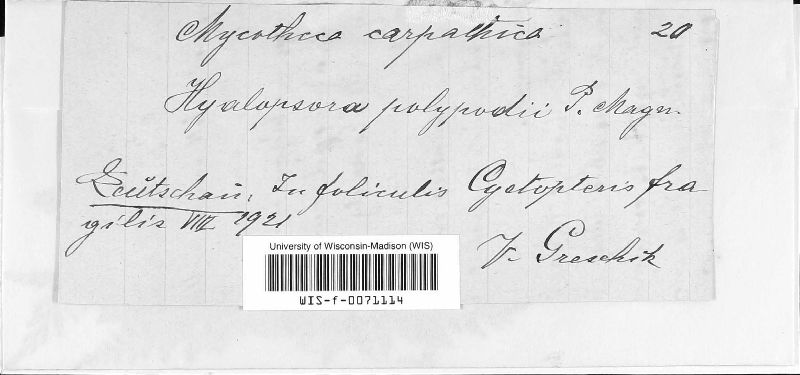 Mycotheca carpathica 20
Hyalopsora polypodii P. Magn.
Leutschau, In foliculis Cystopteris fra
gilis VIII 1921
V. Greschik
University of Wisconsin-Madison (WIS)
WIS-f-0071114